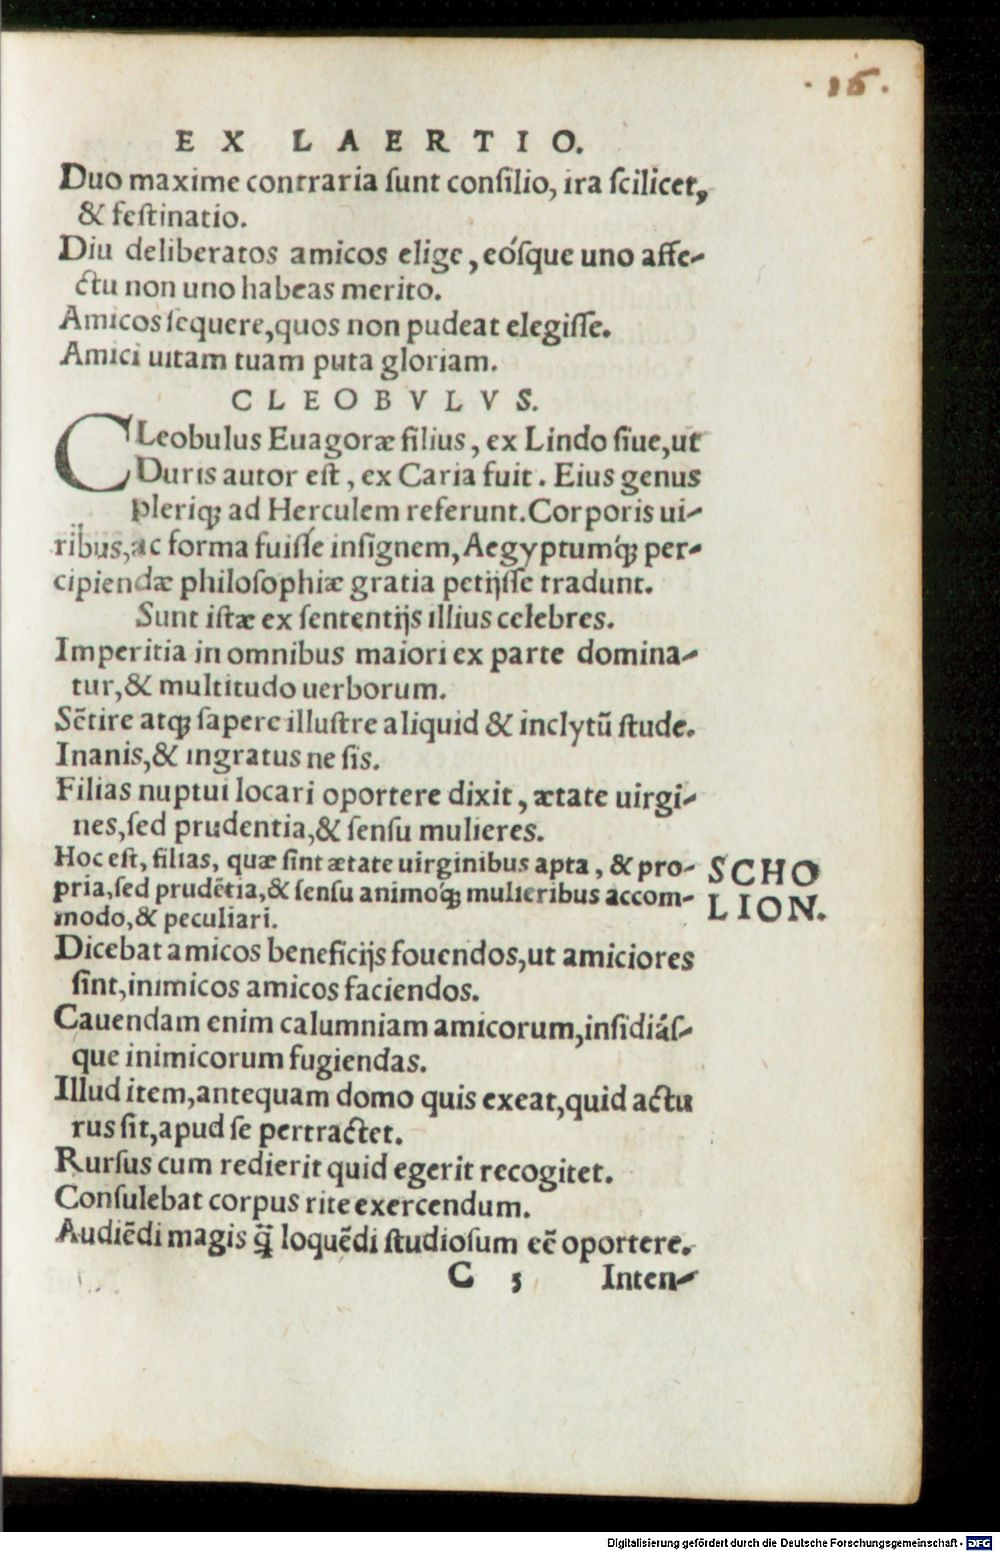 · 15 ·
EX LAERTIO.
Duo maxime contraria ſunt conſilio, ira ſcilicet,
& feſtinatio.
Diu deliberatos amicos elige, eóſque uno affe-
ctu non uno habeas merito.
Amicos ſequere, quos non pudeat elegiſſe.
Amici uitam tuam puta gloriam.
CLEOBVLVS.
CLeobulus Euagoræ filius, ex Lindo ſiue, ut
Duris autor eſt, ex Caria fuit. Eius genus
pleriqꝫ ad Herculem referunt. Corporis ui-
ribus, ac forma fuiſſe inſignem, Aegyptumq́ꝫ per-
cipiendæ philoſophiæ gratia petijſſe tradunt.
Sunt iſtæ ex ſententijs illius celebres.
Imperitia in omnibus maiori ex parte domina-
tur, & multitudo uerborum.
Sẽtire atqꝫ ſapere illuſtre aliquid & inclytũ ſtude.
Inanis, & ingratus ne ſis.
Filias nuptui locari oportere dixit, ætate uirgi-
nes, ſed prudentia, & ſenſu mulieres.
Hoc eſt, filias, quæ ſint ætate uirginibus apta, & pro-
pria, ſed prudẽtia, & ſenſu animoq́ꝫ mulieribus accom-
modo, & peculiari.
SCHO
LION.
Dicebat amicos beneficijs fouendos, ut amiciores
ſint, inimicos amicos faciendos.
Cauendam enim calumniam amicorum, inſidiáſ-
que inimicorum fugiendas.
Illud item, antequam domo quis exeat, quid actu
rus ſit, apud ſe pertractet.
Rurſus cum redierit quid egerit recogitet.
Conſulebat corpus rite exercendum.
Audiẽdi magis q̃ȝ loquẽdi ſtudioſum eẽ oportere.
C 5 Inten-
Digitalisierung gefördert durch die Deutsche Forschungsgemeinschaft - DFG